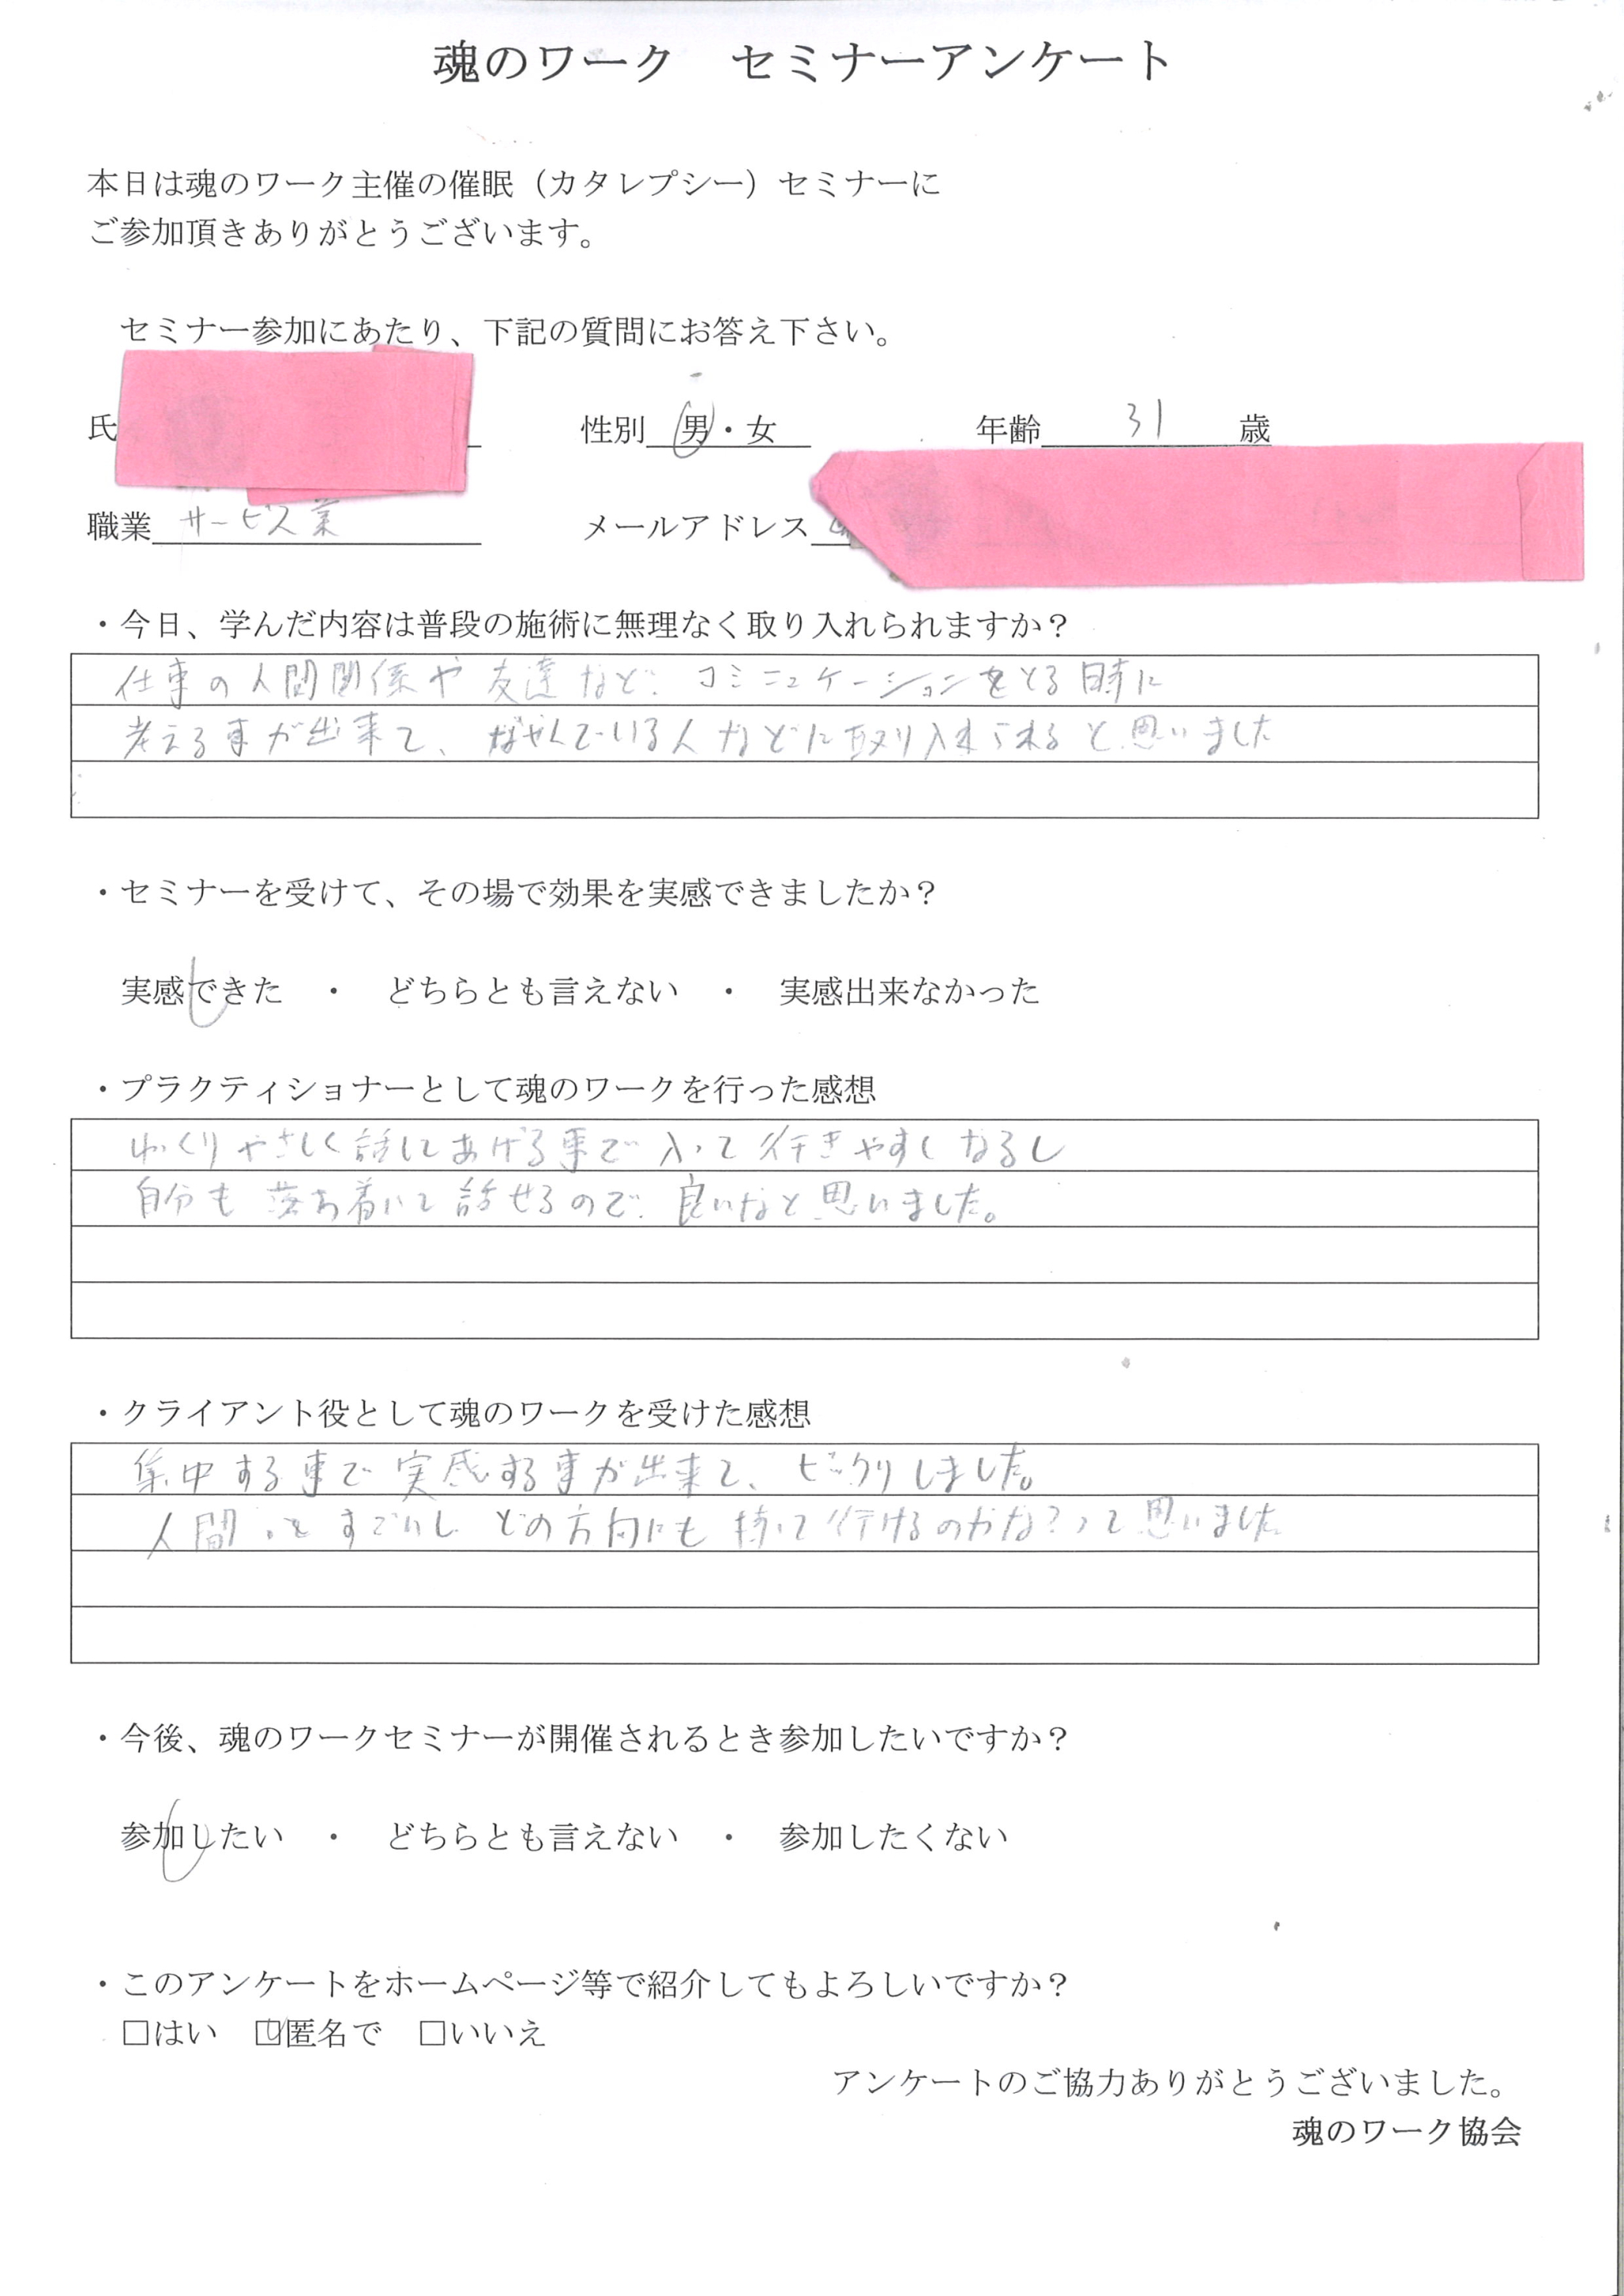 魂のワーク　セミナーアンケート
本日は魂のワーク主催の催眠（カタレプシー）セミナーに
ご参加頂きありがとうございます。
セミナー参加にあたり、下記の質問にお答え下さい。
氏　性別　男・女　年齢　31　歳
職業　サービス業　メールアドレス
・今日、学んだ内容は普段の施術に無理なく取り入れられますか？
仕事の人間関係や友達など、コミニュケーションをとる時に
考える事が出来て、なやんでいる人などに取り入れられると思いました
・セミナーを受けて、その場で効果を実感できましたか？
実感できた　・　どちらとも言えない　・　実感出来なかった
・プラクティショナーとして魂のワークを行った感想
ゆっくりやさしく話してあげる事で入って行きやすくなるし
自分も落ち着いて話せるので、良いなと思いました。
・クライアント役として魂のワークを受けた感想
集中する事で実感する事が出来て、ビックリしました。
人間っとすごいし どの方向にも持って行けるのかな?って思いました
・今後、魂のワークセミナーが開催されるとき参加したいですか？
参加したい　・　どちらとも言えない　・　参加したくない
・このアンケートをホームページ等で紹介してもよろしいですか？
□はい　☑匿名で　□いいえ
アンケートのご協力ありがとうございました。
魂のワーク協会